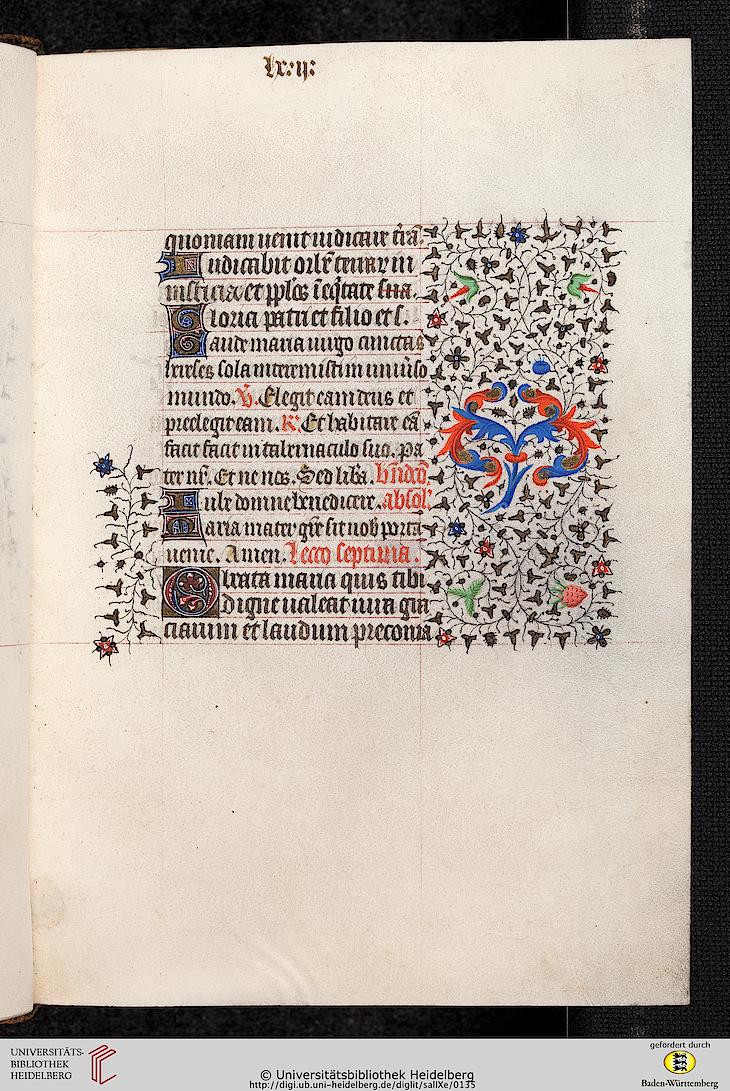 lxxij
quoniam uenit iudicare t̄rā.
Iudicabit orbē terrar in
iusticia et pp̄los ī eq̄tate sua.
Gloria patri et filio et s.
Gaude maria uirgo cunctas
hereses sola interemisti in uniūso
mundo. V̄. Elegit eam deus et
preelegit eam. R̄. Et habitare eā
facit facit in tabernaculo suo. Pa
ter nr̄. Et ne nos. Sed lib̄a. b̄ndcō.
Iube domne benedicere. absol'.
Maria mater gr̄e sit nob porta
uenie. Amen. Lecco septima.
O beata maria quis tibi
digne ualeat iura gra
ciarum et laudum preconia
UNIVERSITÄTS-
BIBLIOTHEK
HEIDELBERG
© Universitätsbibliothek Heidelberg
http://digi.ub.uni-heidelberg.de/diglit/sallXe/0135
gefördert durch
Baden-Württemberg